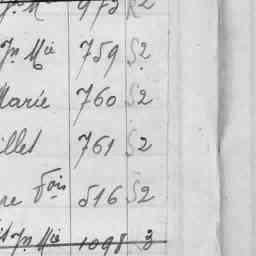 Jn Mie 759 S2
Marie 760 S2
illet 761 S2
re Fois 516 S2
Jn Mie 1098 3